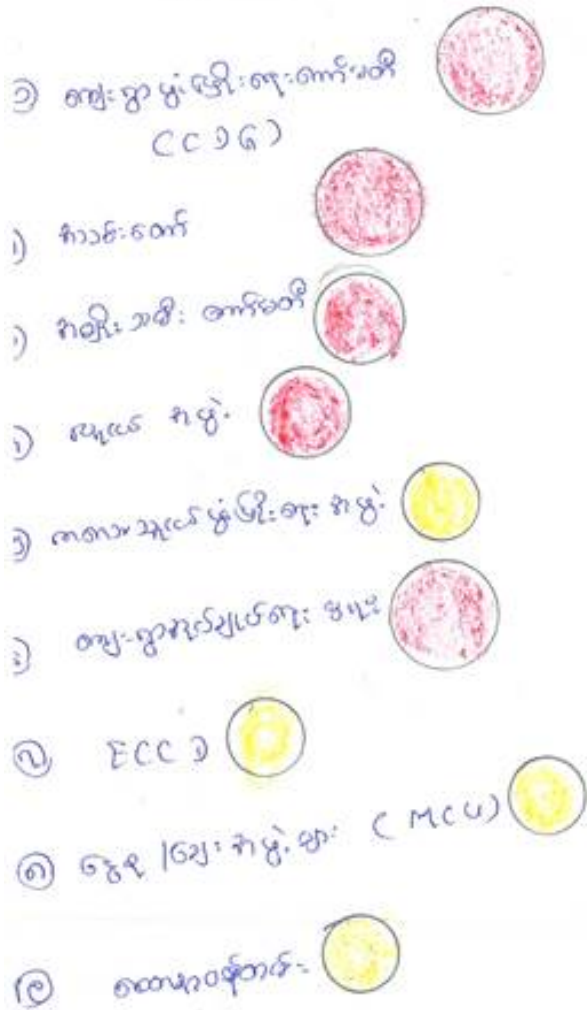 ၁) ကျေးရွာ ဖွံ့ဖြိုးရေး ကော်မတီ
(CCDG)
၂) ဘာသင်းတော်
၃) အမျိုးသမီး ကော်မတီ
၄) လူငယ် အဖွဲ့
၅) ကလေးသူငယ် ဖွံ့ဖြိုးရေး အဖွဲ့
၆) ကျေးရွာအုပ်ချုပ်ရေး မှူး
၇) ECCD
၈) ငွေစု ကြေး အဖွဲ့ များ (MCU)
၉)